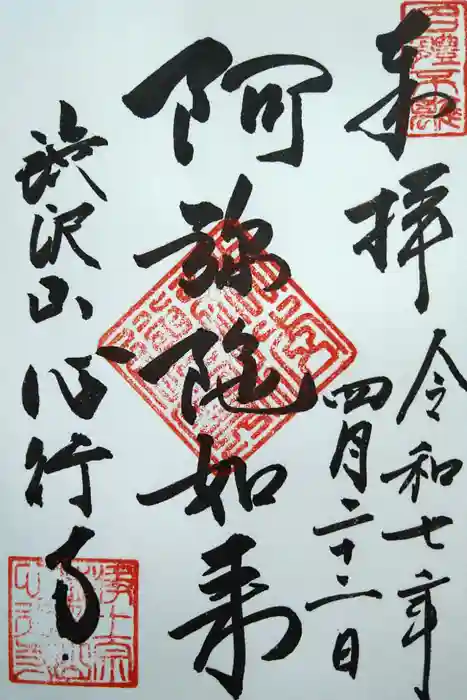 奉拝
令和七年
四月二十二日
阿弥陀如来
渋沢山心行寺